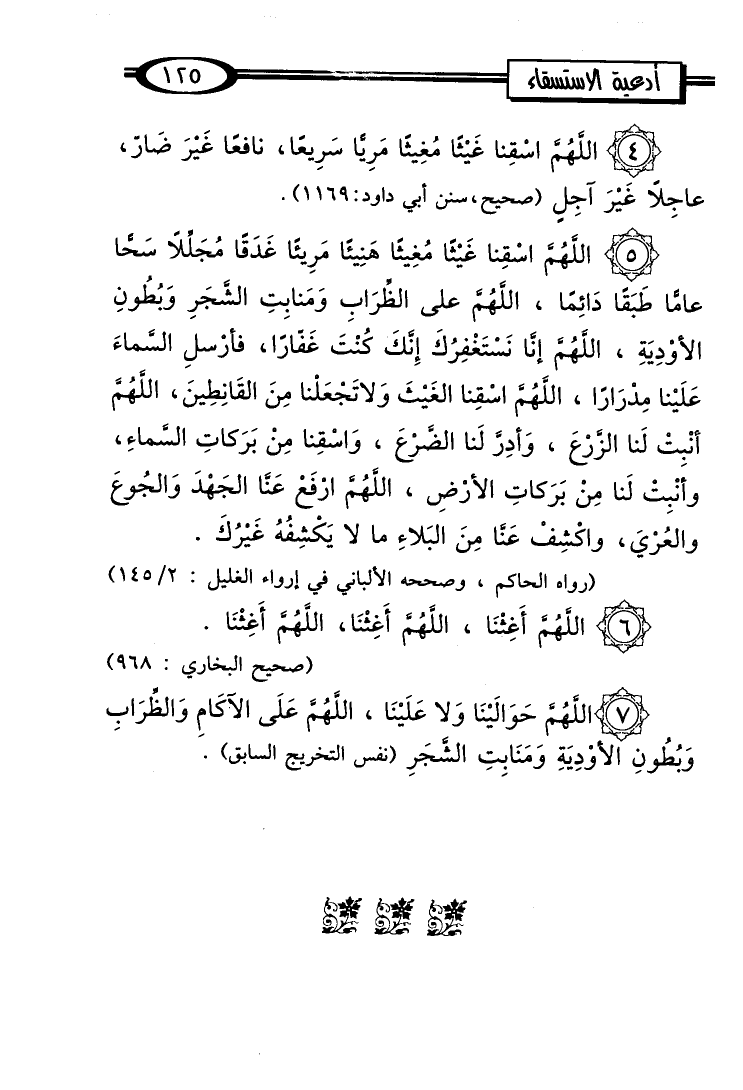 أدعية الاستسقاء ١٢٥
٤ اللَّهُمَّ اسْقِنا غَيْثًا مُغِيثًا مَرِيًّا سَرِيعًا، نافعًا غَيْرَ ضَارّ،
عاجِلًا غَيْرَ آجِلٍ (صحيح،سنن أبي داود:١١٦٩).
٥ اللَّهُمَّ اسْقِنا غَيْثًا مُغِيثًا هَنِيئًا مَرِيئًا غَدَقًا مُجَلِّلًا سَحًّا
عامًّا طَبَقًا دَائِمًا ، اللَّهُمَّ على الظِّرَابِ وَمَنابِتِ الشَّجَرِ وَبُطُونِ
الأَوْدِيَةِ ، اللَّهُمَّ إنَّا نَسْتَغْفِرُكَ إنَّكَ كُنْتَ غَفّارًا، فأرْسلِ السَّماءَ
عَلَيْنا مِدْرَارًا ، اللَّهُمَّ اسْقِنا الغَيْثَ وَلاتَجْعَلْنا مِنَ القَانِطِينَ، اللَّهُمَّ
أنْبِتْ لَنا الزَّرْعَ ، وَأدِرَّ لَنا الضَّرْعَ ، وَاسْقِنا مِنْ بَرَكاتِ السَّماءِ،
وأنْبِتْ لَنا مِنْ بَرَكاتِ الأرْضِ ، اللَّهُمَّ ارْفَعْ عَنَّا الجَهْدَ وَالجُوعَ
والعُرْيَ، واكْشِفْ عَنَّا مِنَ البَلاءِ ما لا يَكْشِفُهُ غَيْرُكَ .
(رواه الحاكم ، وصححه الألباني في إرواء الغليل : ١٤٥/٢)
٦ اللَّهُمَّ أَغِثْنَا ، اللَّهُمَّ أَغِثْنَا، اللَّهُمَّ أَغِثْنَا .
(صحيح البخاري : ٩٦٨)
٧ اللَّهُمَّ حَوَالَيْنَا وَلا عَلَيْنَا ، اللَّهُمَّ عَلَى الآكَامِ وَالظِّرَابِ
وَبُطُونِ الأوْدِيَةِ وَمَنَابِتِ الشَّجَرِ (نفس التخريج السابق) .